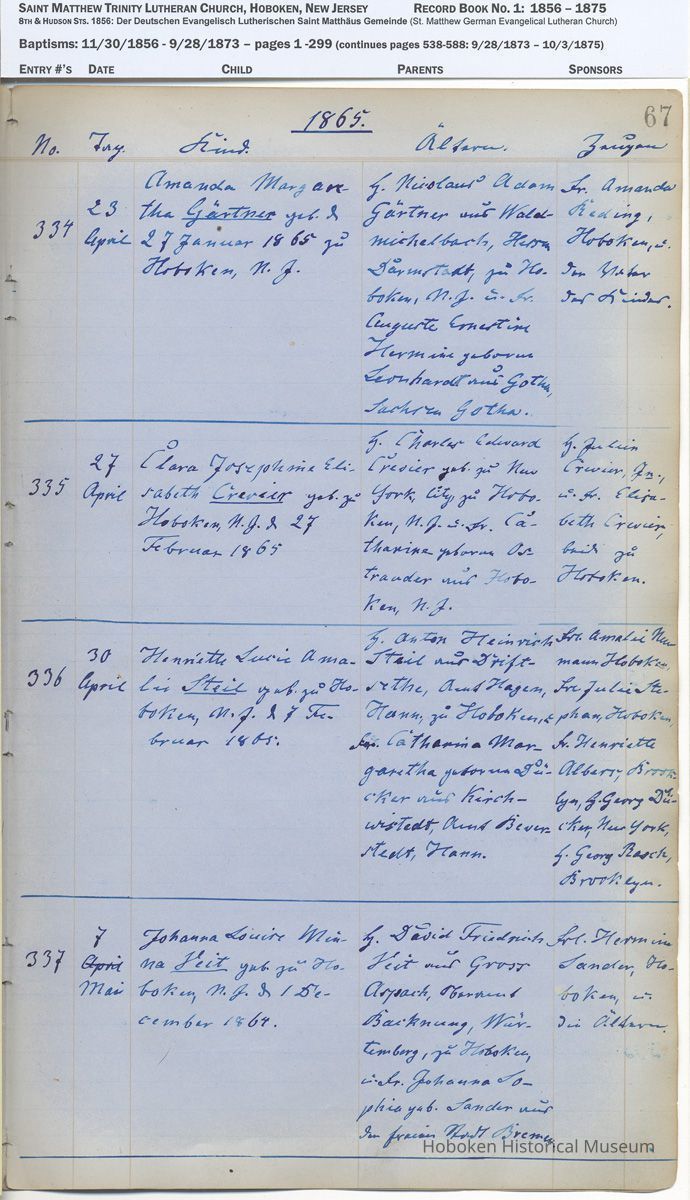 SAINT MATTHEW TRINITY LUTHERAN CHURCH, HOBOKEN, NEW JERSEY RECORD BOOK NO. 1: 1856 – 1875
8TH & HUDSON STS. 1856: Der Deutschen Evangelisch Lutherischen Saint Matthäus Gemeinde (St. Matthew German Evangelical Lutheran Church)
Baptisms: 11/30/1856 - 9/28/1873 – pages 1 -299 (continues pages 538-588: 9/28/1873 – 10/3/1875)
ENTRY #'S DATE CHILD PARENTS SPONSORS
1865. 67
No. Tag. Kind. Ältern. Zeugen
334
23
April
Amanda Margare-
tha Gärtner geb. d.
27 Januar 1865 zu
Hoboken, N. J.
H. Nicolaus Adam
Gärtner aus Wald-
michelbach, Hessen
Darmstadt, zu Ho-
boken, N. J. u. Fr.
Auguste Ernestine
Hermine geboren
Leonhardt aus Gotha,
Sachsen Gotha.
Fr. Amanda
Reding,
Hoboken, u.
der Vater
des Kindes.
335
27
April
Clara Josephine Eli-
sabeth Crevier geb. zu
Hoboken, N. J. d. 27
Februar 1865
H. Charles Edward
Crevier geb. zu New
York, City, zu Hobo-
ken, N. J. u. Fr. Ca-
tharine geboren Os-
trander aus Hobo-
ken, N. J.
H. Julien
Crevier, Jn.,
u. Fr. Elisa-
beth Crevier,
beide zu
Hoboken.
336
30
April
Henriette Lucie Ama-
lie Steil geb. zu Ho-
boken, N. J. d. 7 Fe-
bruar 1865.
H. Anton Heinrich
Steil aus Drift-
sethe, Amt Hagen,
Hann, zu Hoboken, u.
Fr. Catharina Mar-
garetha geboren Dü-
cker aus Kirch-
wistedt, Amt Bever-
stedt, Hann.
Frl. Amalie Neu
mann Hoboken,
Fr. Julie Ste-
phan, Hoboken,
Fr. Henriette
Albers, Brook-
lyn, H. Georg Dü-
cker, New York,
H. Georg Rasch,
Brooklyn.
337
7
April
Mai
Johanna Louise Min-
na Veit geb. zu Ho-
boken, N. J. d. 1 De-
cember 1864.
H. David Friedrich
Veit aus Gross
Aspach, Oberamt
Backnung, Wür-
temberg, zu Hoboken,
u. Fr. Johanna So-
phia geb. Sander aus
der freien Stadt Bremen
Frl. Hermine
Sander, Ho-
boken, u.
die Ältern.
Hoboken Historical Museum